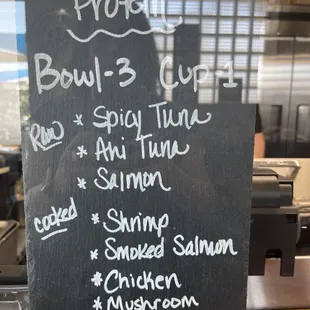 Protein
Bowl-3 Cup-1
Raw
* Spicy Tuna
* Ahi Tuna
* Salmon
cooked
* Shrimp
* Smoked Salmon
* Chicken
* Mushroom